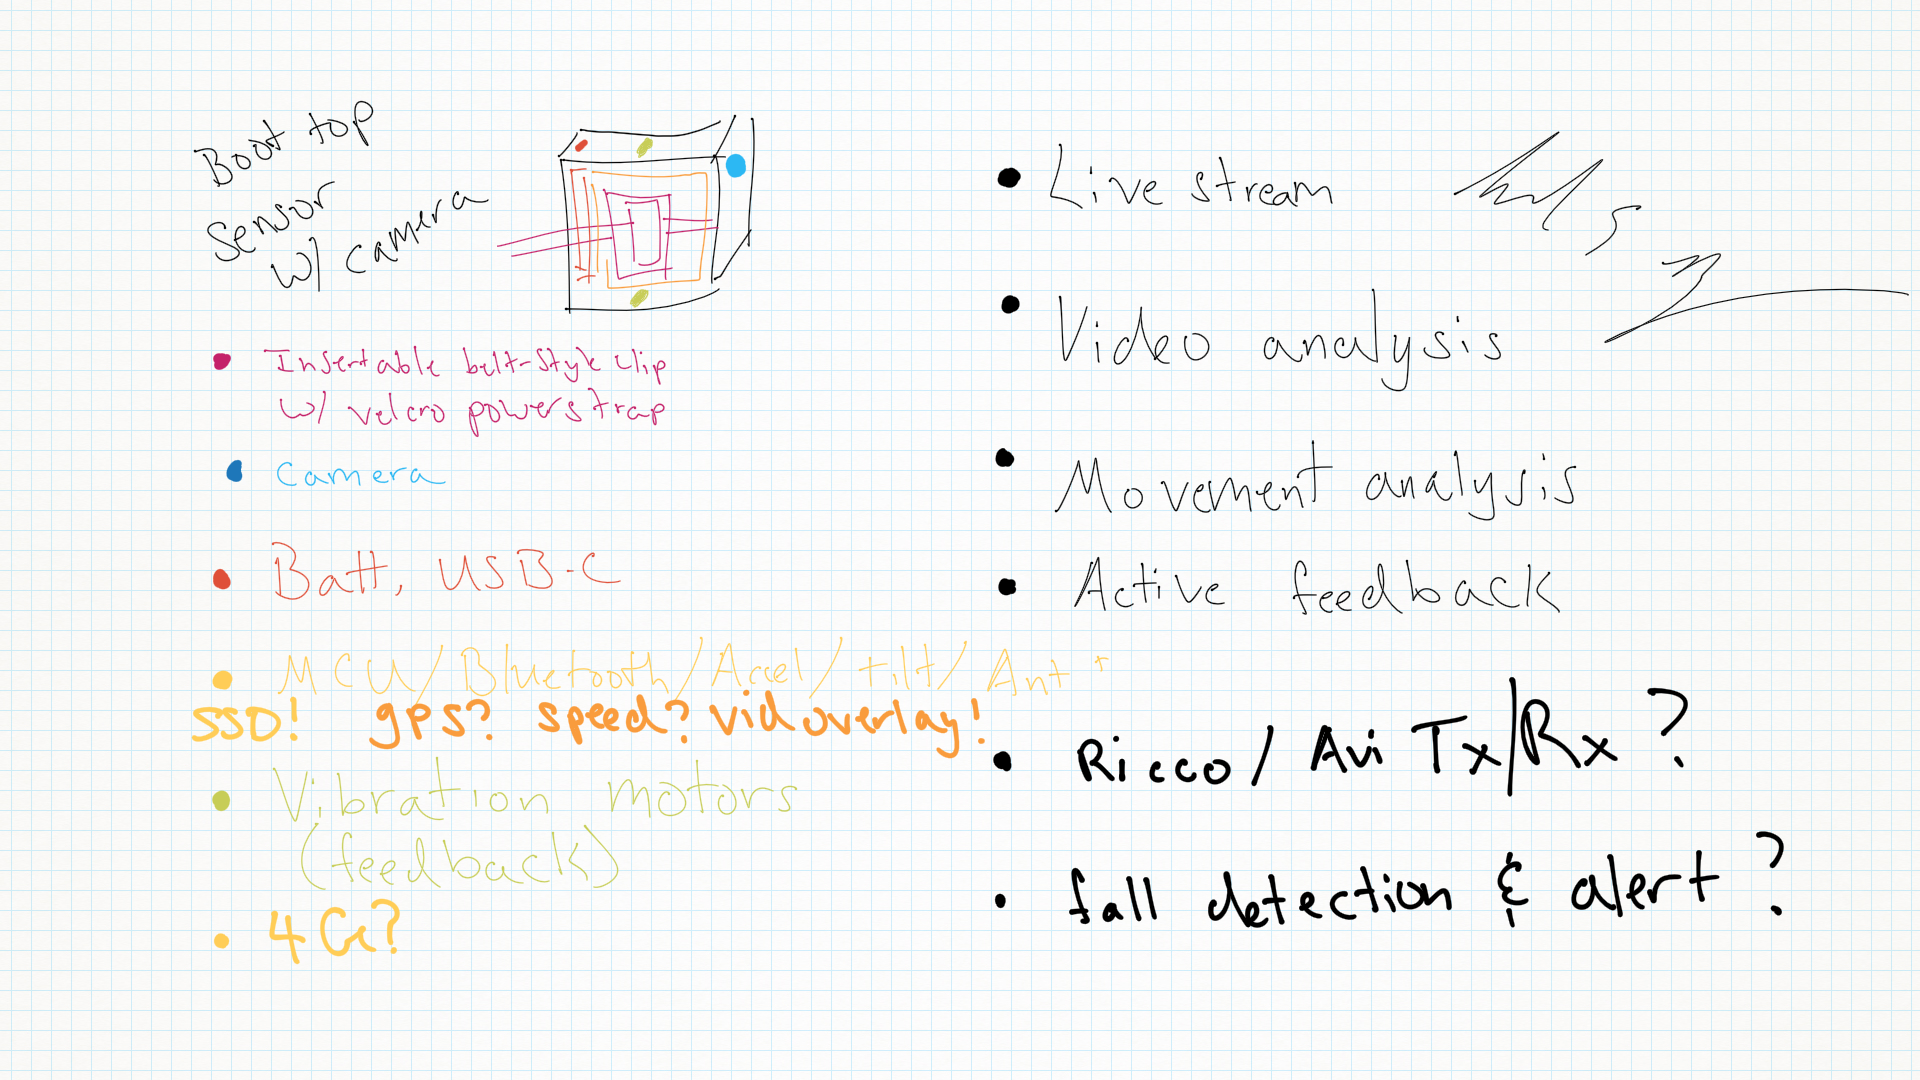 Boot top
sensor
w/ camera
• Insertable belt-style clip
w/ velcro power strap
• camera
• Batt, USB-C
• MCU/Bluetooth/Accel/tilt/Ant+
SSD! gps? speed? vid overlay!
• Vibration motors
(feedback)
• 4G?
• Live stream
• Video analysis
• Movement analysis
• Active feedback
• Ricco / Avi Tx/Rx ?
• fall detection & alert ?